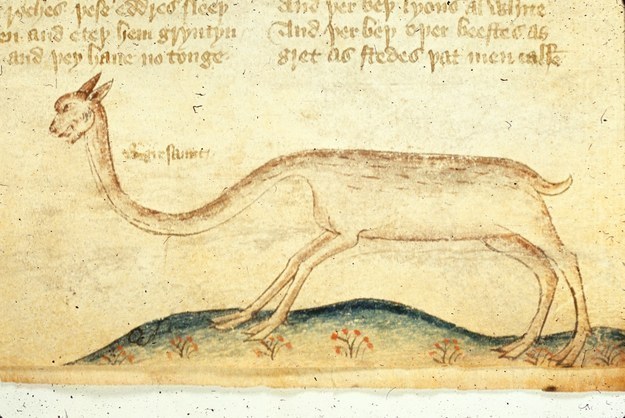 þese eddres sleeþ
en and eteþ hem gryntyn
and þey haue no tonge
And þer beþ lyons al white
And þer beþ oþer beestes as
gret as stedes þat men calle